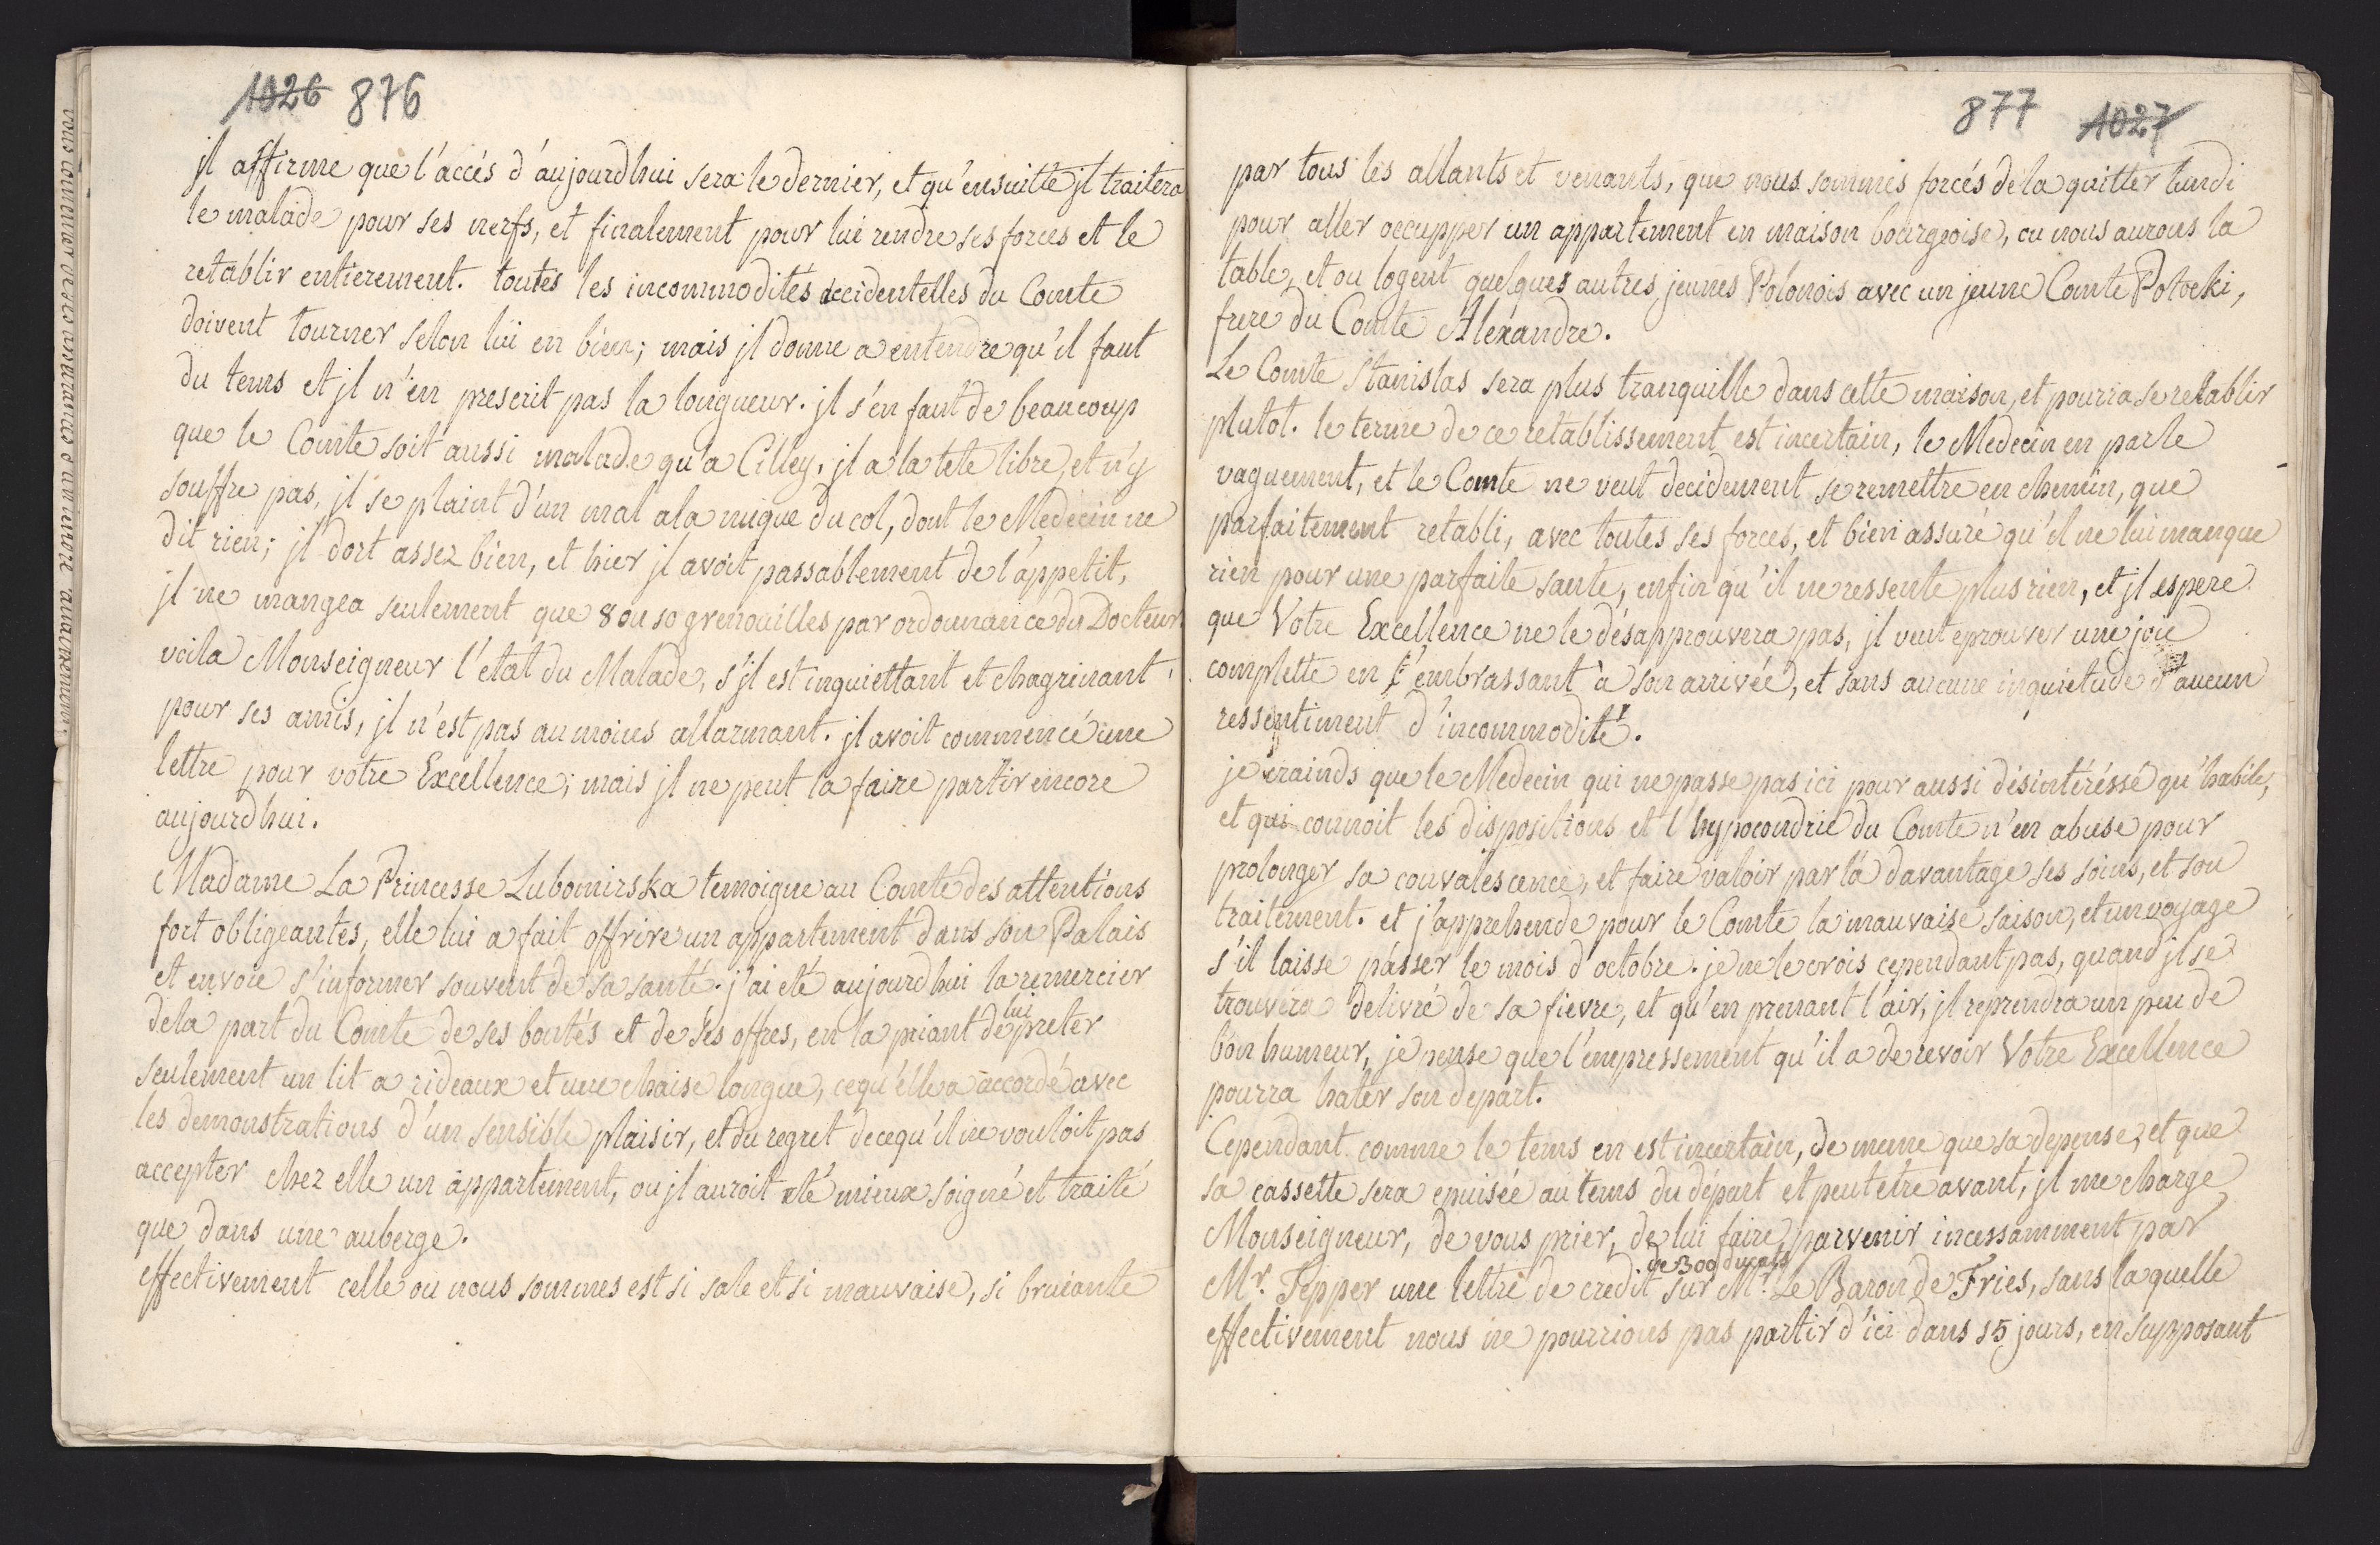 1026 876
jl affirme que l'accés d'aujourdhui sera le dernier, et qu'ensuitte jl traitera
le malade pour ses nerfs, et finalement pour lui rendre ses forces et le
retablir entierement. toutes les incommodités accidentelles du Comte
doivent tourner selon lui en bien; mais jl donne a entendre qu'il faut
du tems et jl n'en prescrit pas la longueur. jl s'en faut de beaucoup
que le Comte soit aussi malade qu'a Cilley, jl a la tete libre, et n'y
souffre pas, jl se plaint d'un mal a la nuque du col, dont le Medecin ne
dit rien; jl dort assez bien, et hier jl avoit passablement de l'appetit,
jl ne mangea seulement que 8 ou 10 grenouilles par ordonnance du Docteur
voila Monseigneur l'etat du Malade, s'jl est inquiettant et chagrinant
pour ses amis, jl n'est pas au moins allarmant. jl avoit commencé une
lettre pour votre Excellence; mais jl ne peut la faire partir encore
aujourdhui.
Madame La Princesse Lubomirska temoigne au Comte des attentions
fort obligeantes, elle lui a fait offrire un appartement dans son Palais
et envoie s'informer souvent de sa santé. j'ai eté aujourdhui la remercier
dela part du Comte de ses bontés et de ses offres, en la priant de lui preter
seulement un lit a rideaux et une chaise longue, ce qu'elle a accordé avec
les demonstrations d'un sensible plaisir, et du regret de ce qu'il ne vouloit pas
accepter chez elle un appartement, ou jl auroit eté mieux soigné et traité
que dans une auberge.
effectivement celle ou nous sommes est si sale et si mauvaise, si bruiante
877 1027
par tous les allants et venants, que nous sommes forcés de la quitter lundi
pour aller occupper un appartement en maison bourgeoise, ou nous aurons la
table, et ou logent quelques autres jeunes Polonois avec un jeune Comte Potocki,
frere du Comte Aléxandre.
Le Comte Stanislas sera plus tranquille dans cette maison, et pourra se retablir
plutot. le terme de ce retablissement est incertain, le Medecin en parle
vaguement, et le Comte ne veut decidement se remettre en chemin, que
parfaitement retabli, avec toutes ses forces, et bien assuré qu'il ne lui manque
rien pour une parfaite sante, enfin qu'il ne ressente plus rien, et jl espere
que Votre Excellence ne le désapprouvera pas, jl veut eprouver une joie
complette en l'embrassant à son arrivée, et sans aucune inquietude d'aucun
ressentiment d'incommodité.
je crainds que le Medecin qui ne passe pas ici pour aussi désintéréssé qu'habile,
et qui connoit les dispositions et l'hypocondrie du Comte n'en abuse pour
prolonger sa convalescence, et faire valoir par là davantage ses soins, et son
traitement. et j'apprehende pour le Comte la mauvaise saison, et un voyage
s'il laisse pásser le mois d'octobre. je ne le crois cependant pas, quand jl se
trouvera delivré de sa fievre, et qu'en prenant l'air, jl reprendra un peu de
bon humeur, je pense que l'empressement qu'il a de revoir Votre Excellence
pourra hater son depart.
Cependant comme le tems en est incertain, de meme que sa depense, et que
sa cassette sera epuisée au tems du départ et peutetre avant, jl me charge
Monseigneur, de vous prier, de lui faire parvenir incessamment par
Mr. Tepper une lettre de credit de 300 ducats sur Mr. Le Baron de Fries, sans laquelle
effectivement nous ne pourrions pas partir d'ici dans 15 jours, en supposant